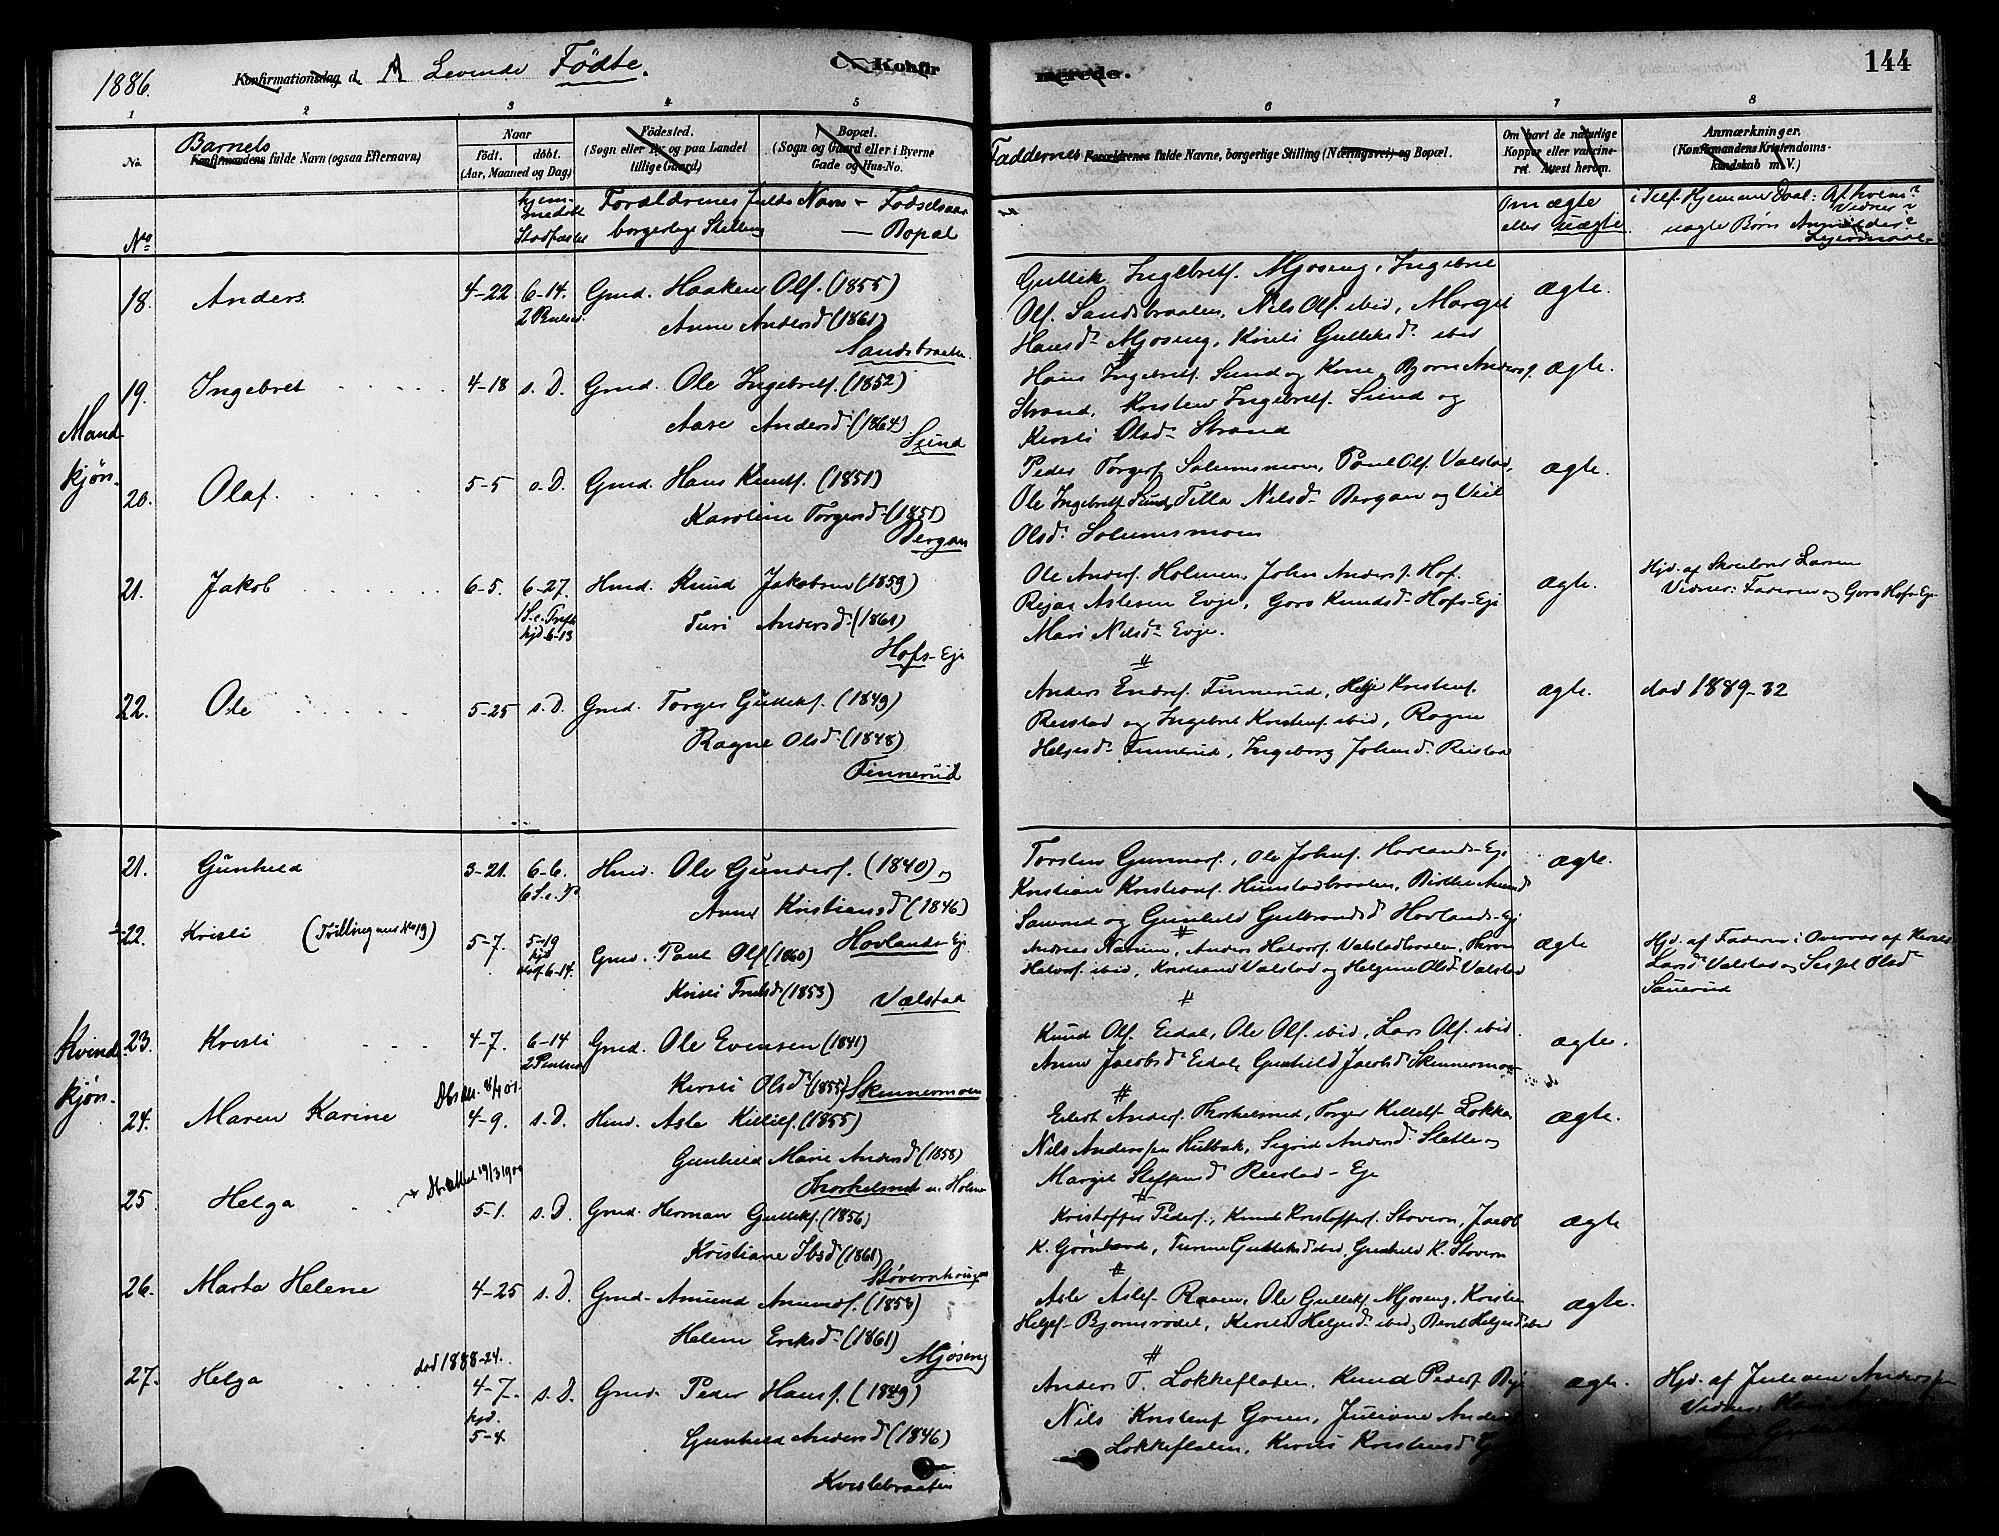 1886.
Konfirmationsdag d.
A Levende Födte.
C. Konfir
merede.
144
1
2
3
4
5
6
7
8
No.
Barnets
Konfirmandens fulde Navn (ogsaa Efternavn)
Naar
födt. döbt.
(Aar, Maaned og Dag)
Födested.
(Sogn eller By og paa Landet
tillige Gaard)
Bopæl.
(Sogn og Gaard eller i Byerne
Gade og Hus-No.
Faddernes Forældrenes fulde Navne, borgerlige Stilling (Næringsvei) og Bopæl.
Om havt de naturlige
Kopper eller vaccine-
ret. Attest herom.
Anmærkninger.
(Konfirmandens Kristendoms-
kundskab m. V.)
No
hjem-
medöbt
Stadfæstet
Forældrenes fulde Navn - Födselsaar
borgerlige Stilling — Bopæl
Om ægte
eller uægte.
i Tilf. Hjemmedaab: Af hvem?
Vidner?
uægte Börn Anmeldes?
Leiermaal-
Mand-
kjön.
18. Anders. 4-22 6-14. Gmd. Haaken Olsf. (1855)
Anne Andersd (1861)
Sandsbraaten
Gullik Ingebretf. Mjöseng, Ingebret
Olf. Sandsbraaten, Nils Olf. ibid, Margit
Hansd. Mjöseng, Kirsti Gulliksd. ibid
ægte.
19. Ingebret 4-18 s. D. Gmd. Ole Ingebretf. (1852)
Aase Andersd. (1864)
Sund
Hans Ingebretf. Sund og Kone, Bjørn Andersf.
Strand, Kristen Ingebretf. Sund og
Kirsti Olsd. Strand
ægte.
20. Olaf. 5-5 s. D. Gmd. Hans Knudf. (1851)
Karoline Torgersd. (1851)
Bergan
Peder Torgerf. Solumsmoen, Poul Olf. Valstad,
Ole Ingebretf. Sund, Tilla Nilsd. Bergan og
Olsd. Solumsmoen
ægte.
21. Jakob 6-5. 6-27. Hmd. Knud Jakobsen (1859)
hjd 6-13
Turi Andersd. (1861)
Hofs-Eje
Ole Andersf. Holmen, John Andersf. Hof.
Aslesen Evje, Goro Knudsd. Hofs-Eje
Mari Nilsd. Evje.
ægte.
Hjd. af Skoleborer Larsen
Vidner: Faderen og Goro Hofs-Eje
22. Ole 5-25 s. D. Gmd. Torger Gullikf. (1849)
Ragne Olsd. (1848)
Finnerud
Anders Endref. Finnerud, Helge Kristenf.
Reistad og Ingebret Kristenf. ibid, Ragne
Helgesd. Finnerud, Ingeborg Johnsd. Reistad
ægte.
död 1889-32
Kvind-
kjön.
21. Gunhild 3-21. 6-6. Hmd. Ole Gunderf. (1840) og
Anne Kristiansd (1846)
Hovlands-Eje
Torsten Gunnarf., Ole Johnf. Hovlands-Eje
Kristian Kristianf. Hunstadbraaten,
og Gunhild Gulbrandsd Hovlands-Ej
ægte.
22. Kristi (Tvilling No 19) 5-7. 5-19
hjd
6-14.
Gmd. Paul Olf (1860)
Kristi Trulsd (1853) Vælstad
Andreas Narum, Anders Halvorf. Valstadbraaten,
Halvorf. ibid, Kristiane Valstad og Helgine Olsd Valstad
ægte
Hjd. af Faderen i Overvær af Kirsti
Larsd Valstad og Sespl Olsd
Sauerud
23. Kristi 4-7. 6-14 Gmd. Ole Evensen (1841)
Kirsti Olsd. (1855) Skinnesmoen
Knud Olf. Eidal, Ole Olf. ibid, Lars Olf. ibid
Anne Jacobsd Eidal, Gunhild Jacobsd Skinnesmoen
ægte.
24. Maren Karine 4-9. s. D. Hmd. Asle Killilf. (1855)
Gunhild Marie Andersd (1858)
Thorkelsrud
Eilert Andersf. Thorkelsrud, Torger Killelf Løkka
Nils Anderssen Hulbak, Sigrid Andersd. Slette og
Margit Steffensd Reistad-Eje
ægte.
25. Helga 5-1. s. D. Gmd. Herman Gullikf. (1856)
Kristiane Ibsd (1861)
Stövernhaugen
Kristoffer Pederf., Knud Kristofferf. Stovern, Jacob
K. Grönland, Turine Gulliksd ibid, Gunhild K. Stovern
ægte
26. Marta Helene 4-25 s. D. Gmd. Amund Amundf. (1858)
Helene Eriksd. (1861)
Mjöseng
Asle Aslef. Raaen, Ole Gullikf. Mjöseng, Kristen
Helgef. Bjornsrödet, Kirsti Helgesd. ibid, Beret Helgesd ibid
ægte.
27. Helga död 1888-24. 4-7. s. D.
hjd.
5-4
Gmd. Peder Hansf. (1849)
Gunhild Andersd (1846)
Kvislebraaten
Anders T. Lökkeflaten, Knud Pederf.
Nils Kristenf Green, Juliane Anders
Lökkeflaten, Kirsti Kristensd
ægte.
Hjd. af Juliane Anderssen
Vidner: